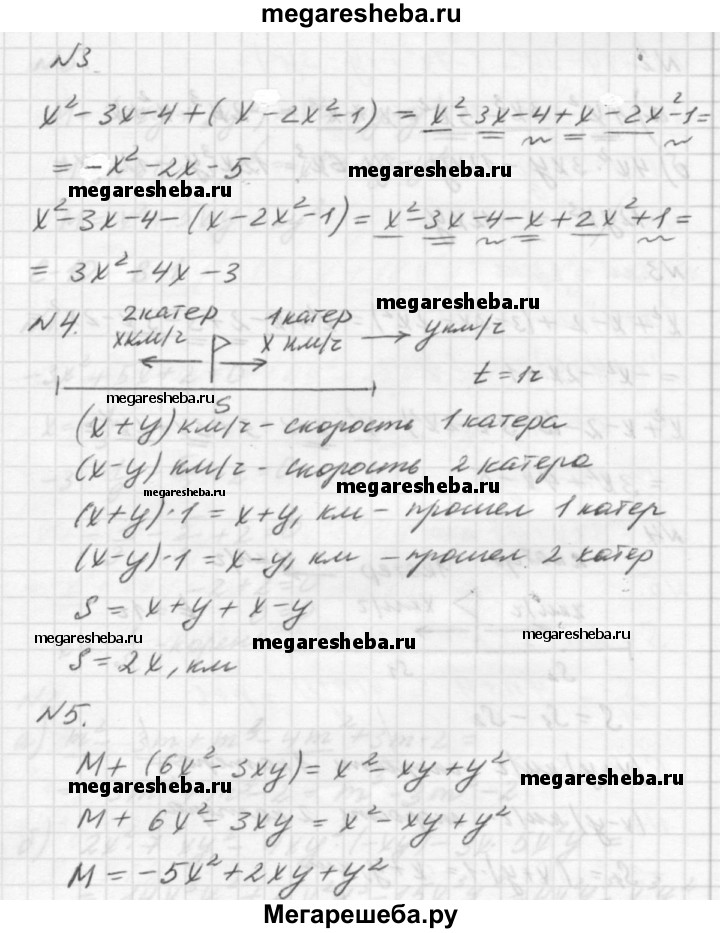 megaresheba.ru
№3
x² - 3x - 4 + (x - 2x² - 1) = x² - 3x - 4 + x - 2x² - 1 =
= -x² - 2x - 5
megaresheba.ru
megaresheba.ru
x² - 3x - 4 - (x - 2x² - 1) = x² - 3x - 4 - x + 2x² + 1 =
= 3x² - 4x - 3
megaresheba.ru
№4. 2 катер 1 катер
x км/ч x км/ч y км/ч
t = 1ч
megaresheba.ru
S
(x + y) км/ч - скорость 1 катера
(x - y) км/ч - скорость 2 катера
megaresheba.ru
megaresheba.ru
(x + y) · 1 = x + y, км - прошел 1 катер
(x - y) · 1 = x - y, км - прошел 2 катер
S = x + y + x - y
megaresheba.ru
megaresheba.ru
megaresheba.ru
S = 2x, км
№5.
M + (6x² - 3xy) = x² - xy + y²
megaresheba.ru
megaresheba.ru
M + 6x² - 3xy = x² - xy + y²
M = -5x² + 2xy + y²
Мегарешеба.ру